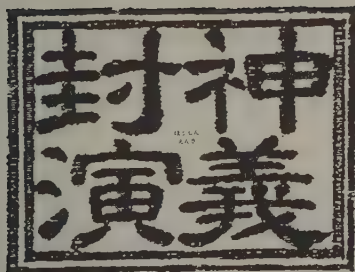 封神
演義
ほうしん
えんぎ